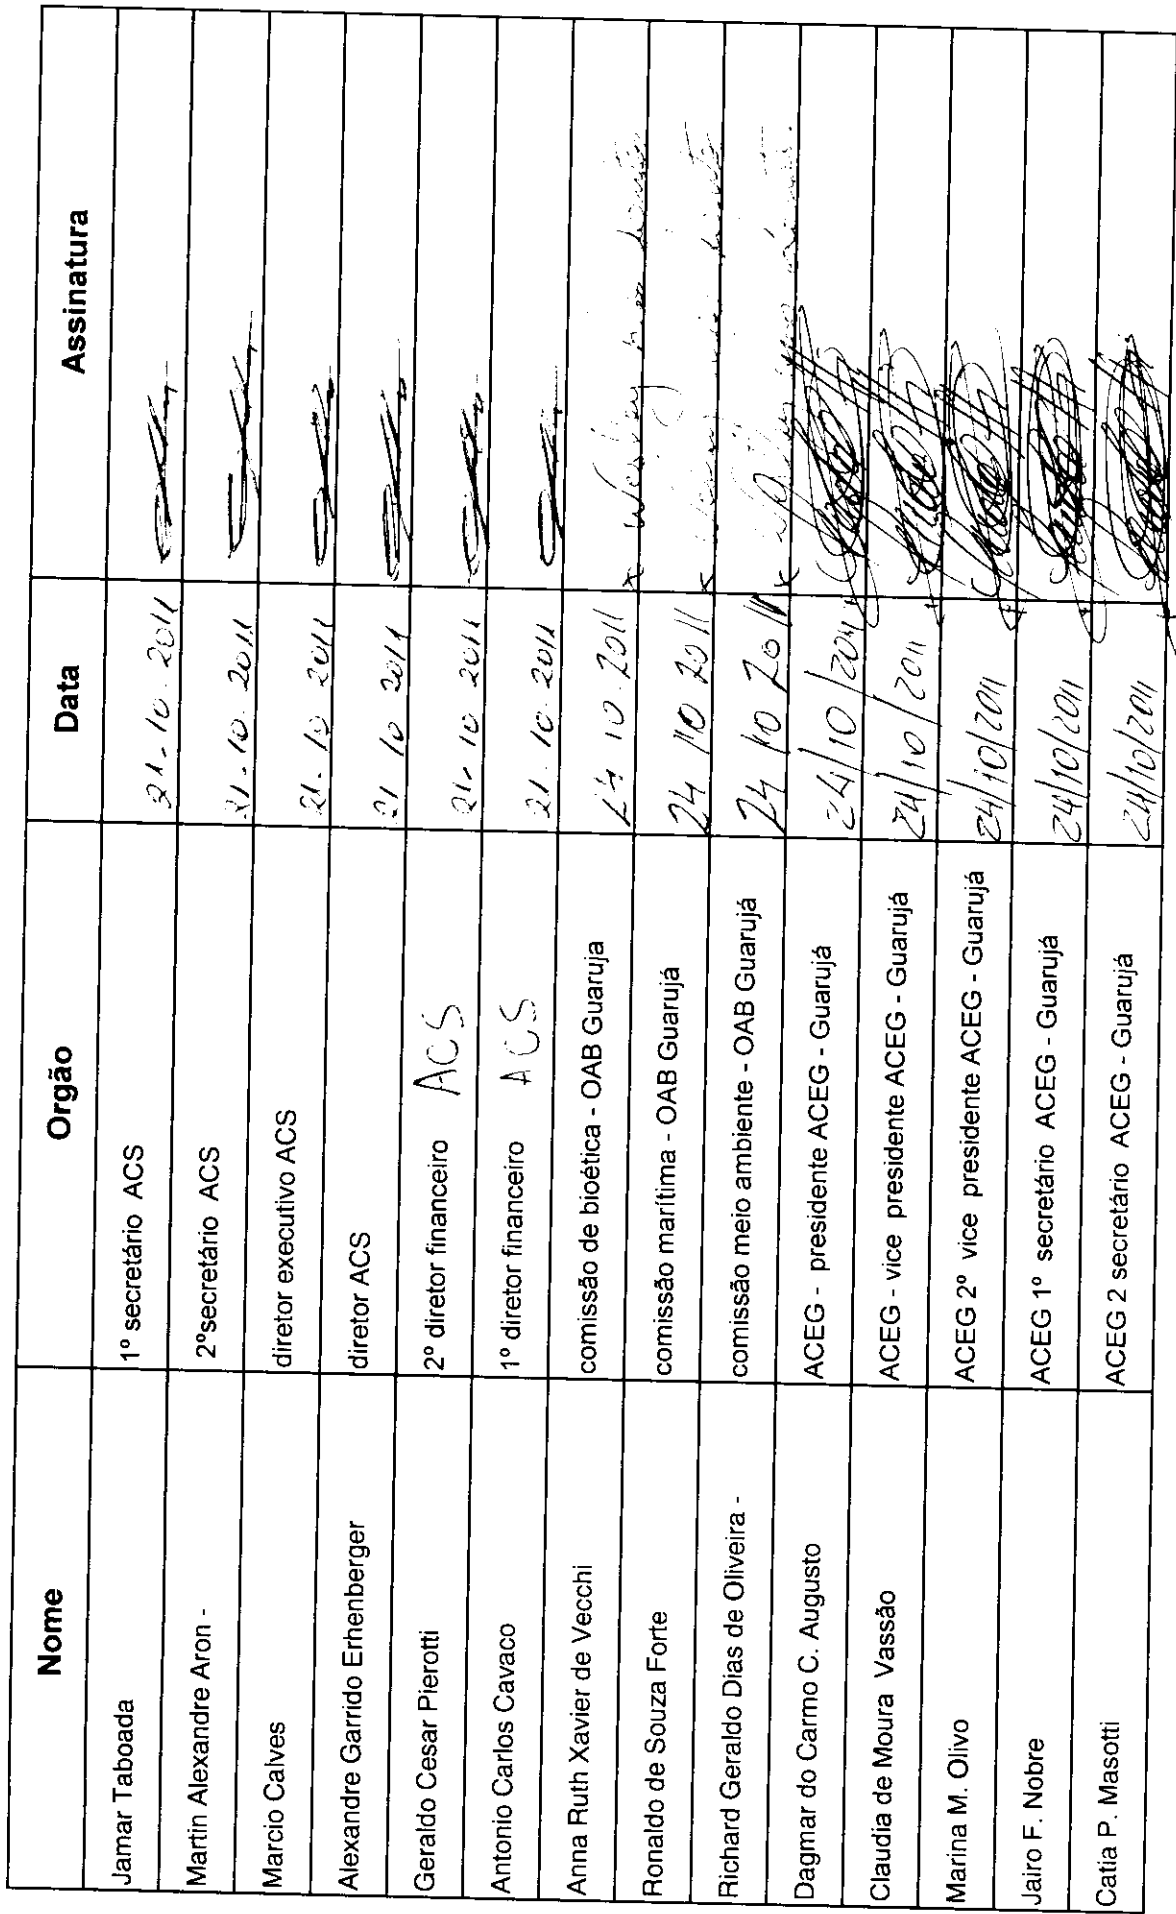 Nome Orgão Data Assinatura
Jamar Taboada 1º secretário ACS 21.10.2011
Martin Alexandre Aron - 2ºsecretário ACS 21.10.2011
Marcio Calves diretor executivo ACS 21.10 2011
Alexandre Garrido Erhenberger diretor ACS 21 10 2011
Geraldo Cesar Pierotti 2º diretor financeiro ACS 21.10 2011
Antonio Carlos Cavaco 1º diretor financeiro ACS 21.10.2011
Anna Ruth Xavier de Vecchi comissão de bioética - OAB Guaruja 24 10.2011 x
Ronaldo de Souza Forte comissão marítima - OAB Guarujá 24 10 2011 x
Richard Geraldo Dias de Oliveira - comissão meio ambiente - OAB Guarujá 24 10 2011 x
Dagmar do Carmo C. Augusto ACEG - presidente ACEG - Guarujá 24/10/2011
Claudia de Moura Vassão ACEG - vice presidente ACEG - Guarujá 24/10/2011
Marina M. Olivo ACEG 2º vice presidente ACEG - Guarujá 24/10/2011
Jairo F. Nobre ACEG 1º secretário ACEG - Guarujá 24/10/2011
Catia P. Masotti ACEG 2 secretário ACEG - Guarujá 24/10/2011